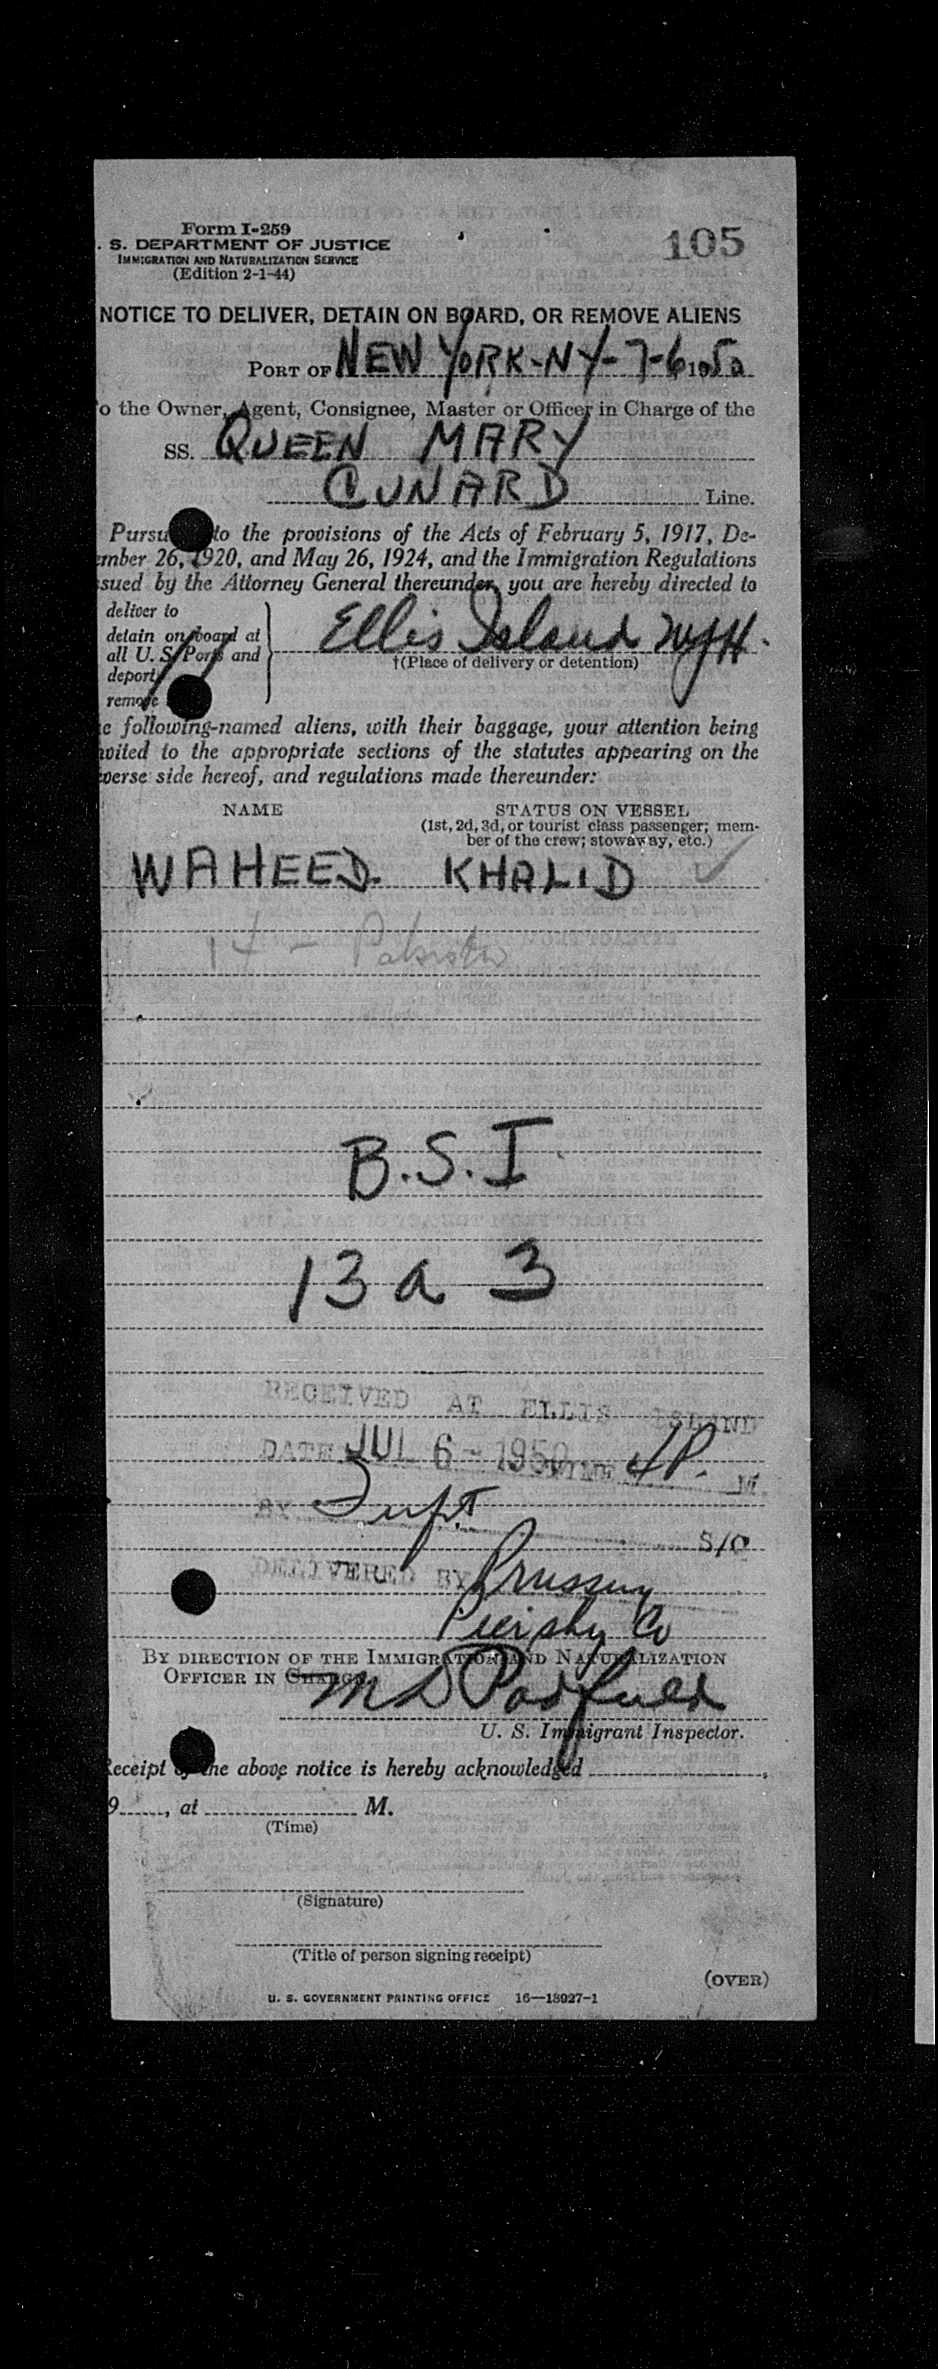 Form I-259
105
. S. DEPARTMENT OF JUSTICE
IMMIGRATION AND NATURALIZATION SERVICE
(Edition 2-1-44)
NOTICE TO DELIVER, DETAIN ON BOARD, OR REMOVE ALIENS
PORT OF NEW YORK-NY-7-6 1950
o the Owner, Agent, Consignee, Master or Officer in Charge of the
SS. QUEEN MARY
CUNARD Line.
Pursu to the provisions of the Acts of February 5, 1917, De-
mber 26, 1920, and May 26, 1924, and the Immigration Regulations
sued by the Attorney General thereunder, you are hereby directed to
deliver to
detain on board at
all U. S. Ports and
deport
remove
Ellis Island
†(Place of delivery or detention)
e following-named aliens, with their baggage, your attention being
vited to the appropriate sections of the statutes appearing on the
verse side hereof, and regulations made thereunder:
NAME STATUS ON VESSEL
(1st, 2d, 3d, or tourist class passenger; mem-
ber of the crew; stowaway, etc.)
WAHEED KHALID
14 - Pakistan
B.S.I
13 a 3
RECEIVED AT ELLIS ISLAND
DATE JUL 6 - 1950 TIME 4 P. M
BY Supt
S/O
DELIVERED BY
Co
BY DIRECTION OF THE IMMIGRATION AND NATURALIZATION
OFFICER IN CHARGE
U. S. Immigrant Inspector.
Receipt of the above notice is hereby acknowledged ,
9 , at M.
(Time)
(Signature)
(Title of person signing receipt)
(OVER)
U. S. GOVERNMENT PRINTING OFFICE 16—18927-1